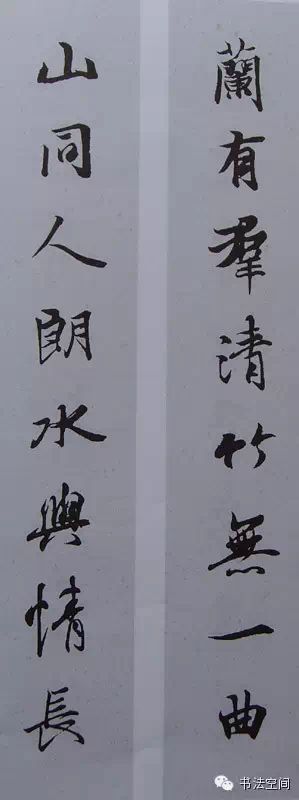 蘭有羣清竹無一曲
山同人朗水與情長
书法空间